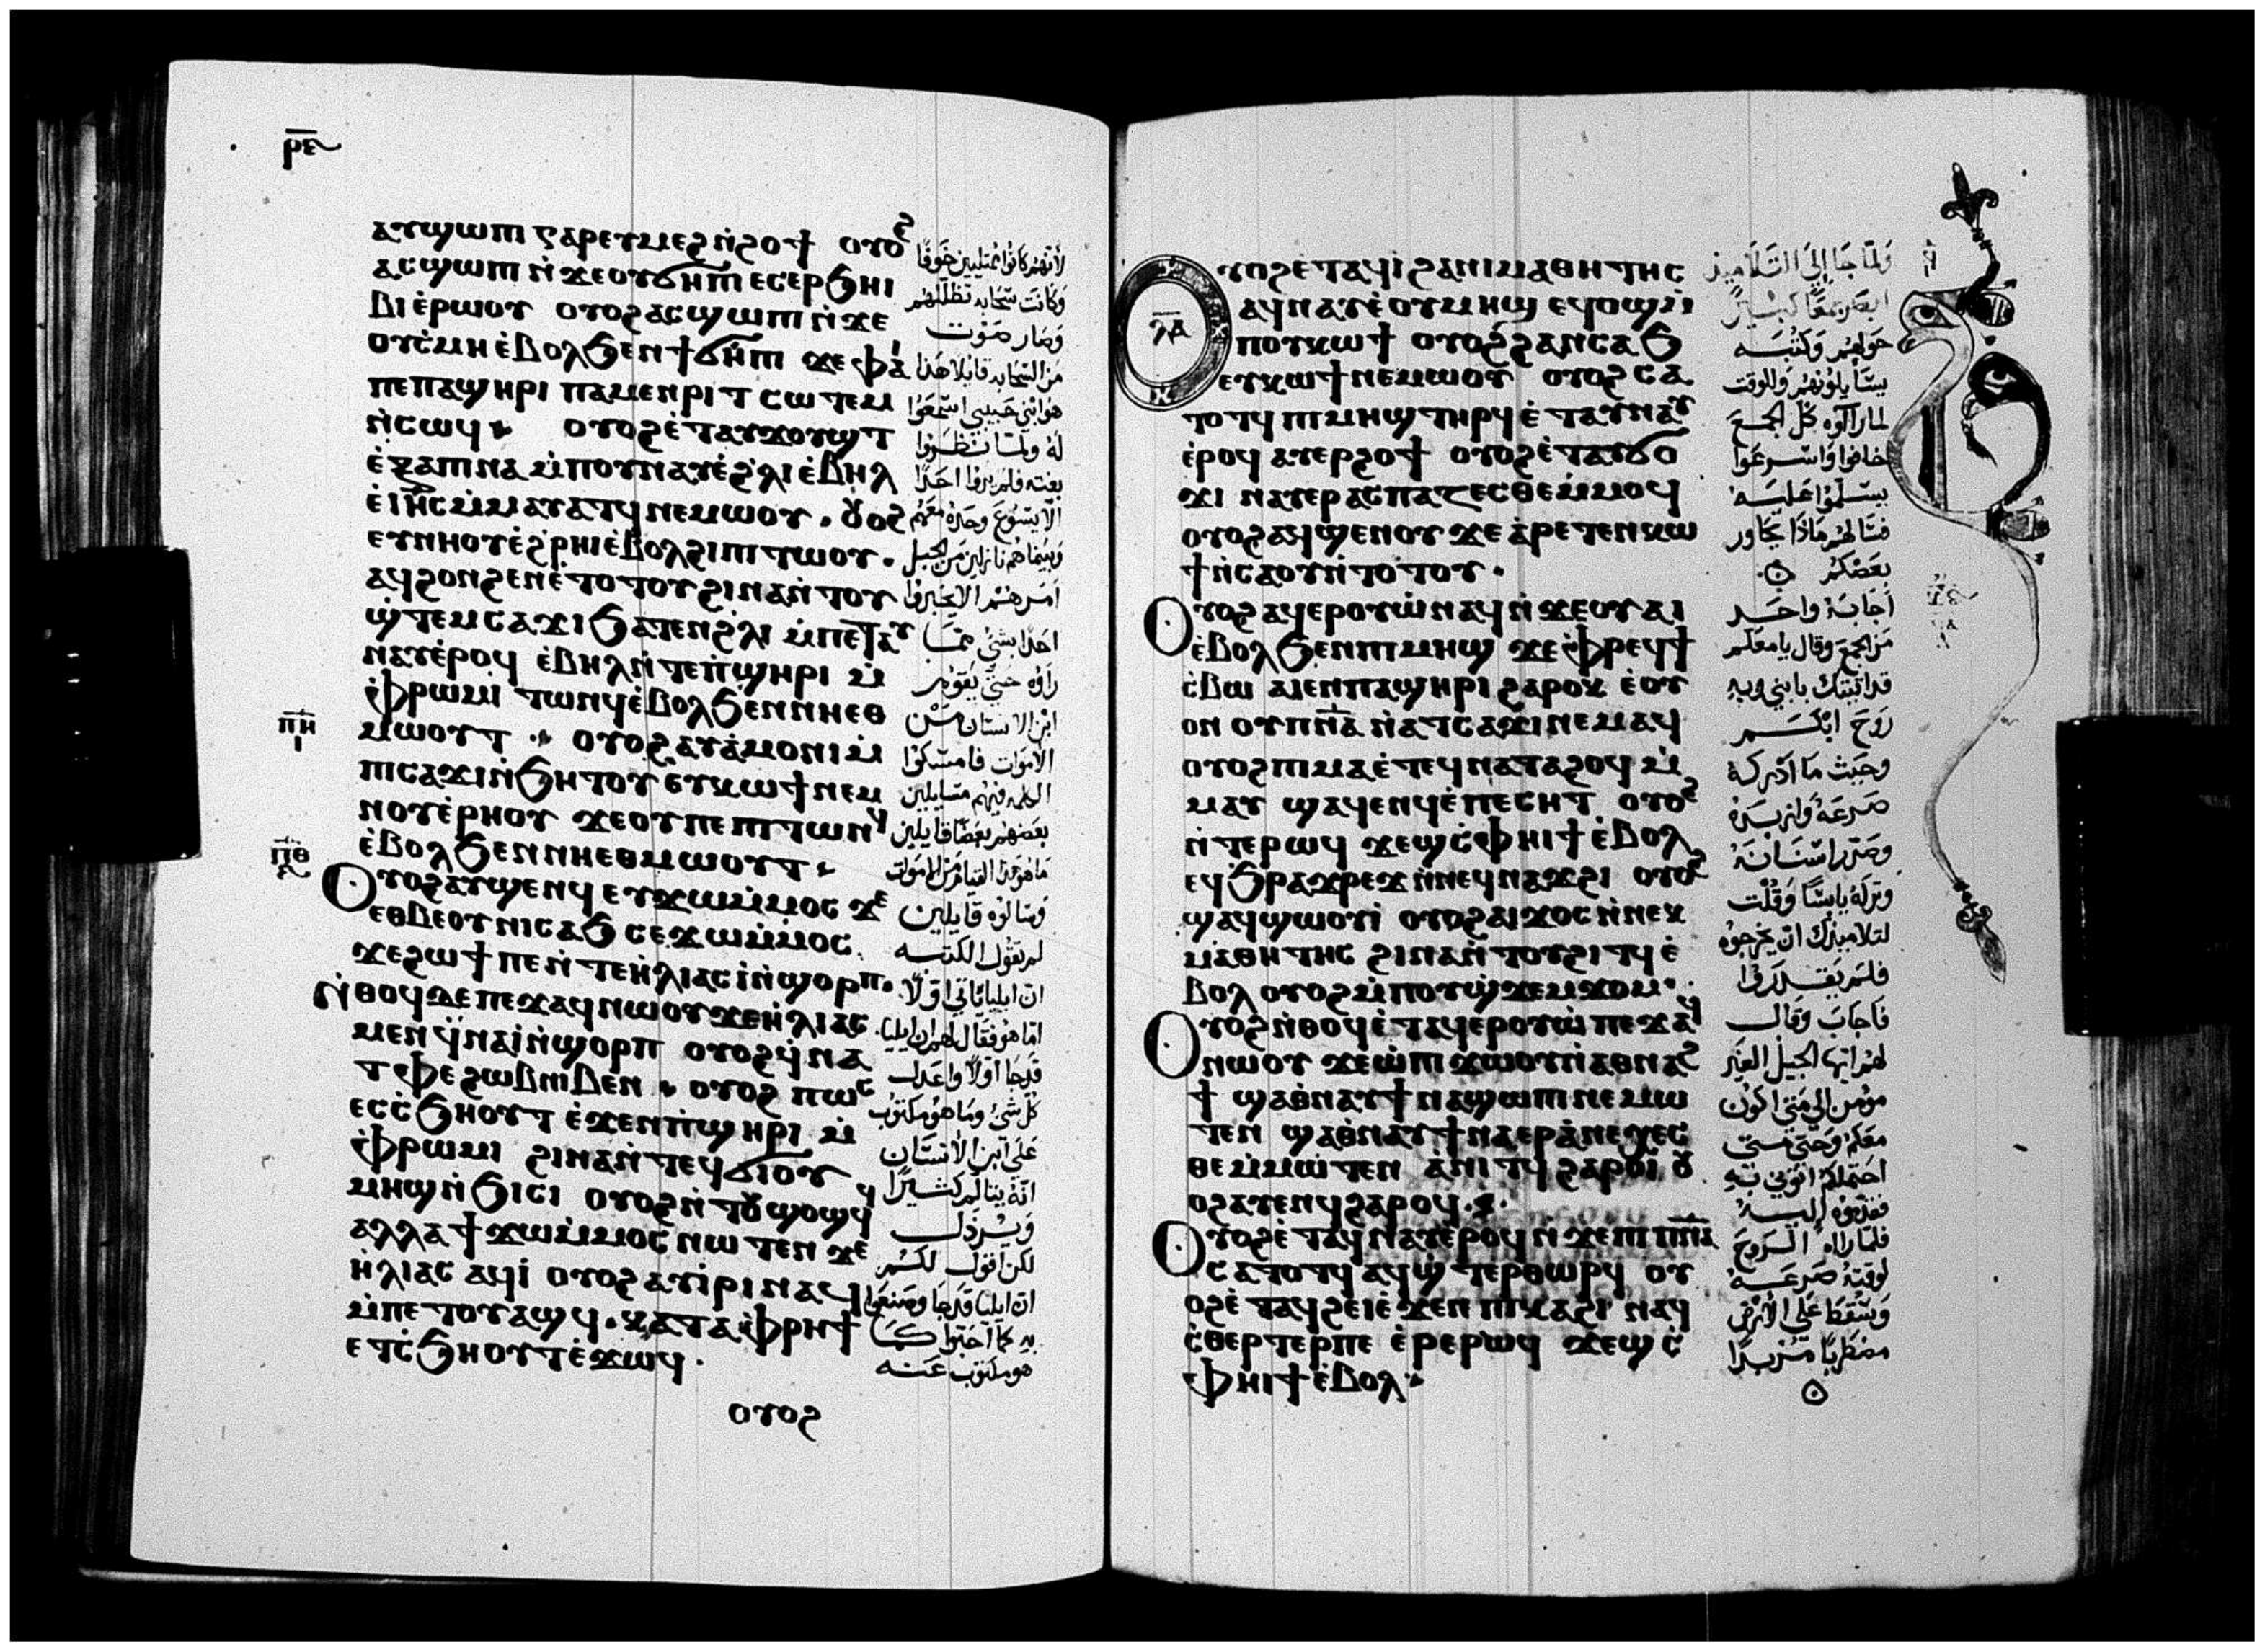 ⲣ̅ⲉ̅
ⲁⲩϣⲱⲡⲓ ⲅⲁⲣ ⲉⲩⲙⲉϩ ⲛ̀ϩⲟϯ ⲟⲩⲟϩ
ⲁⲥϣⲱⲡⲓ ⲛ̀ϫⲉⲟⲩϭⲏⲡⲓ ⲉⲥⲉⲣϧⲏⲓ
ⲃⲓ ⲉ̀ⲣⲱⲟⲩ ⲟⲩⲟϩ ⲁⲥϣⲱⲡⲓ ⲛ̀ϫⲉ
ⲟⲩⲥ̀ⲙⲏ ⲉ̀ⲃⲟⲗϧⲉⲛϯϭⲏⲡⲓ ϫⲉ ⲫⲁⲓ
ⲡⲉⲡⲁϣⲏⲣⲓ ⲡⲁⲙⲉⲛⲣⲓⲧ ⲥⲱⲧⲉⲙ
ⲛ̀ⲥⲱϥ ⲟⲩⲟϩ ⲉ̀ⲧⲁⲩϫⲟⲩϣⲧ
ⲉ̀ⲝⲁⲡⲓⲛⲁ ⲙ̀ⲡⲟⲩⲛⲁⲩ ⲉ̀ϩ̀ⲗⲓ ⲉ̀ⲃⲏⲗ
ⲉ̀ⲓⲏ̅ⲥ̅ ⲙ̀ⲙⲁⲩⲁⲧϥ ⲛⲉⲙⲱⲟⲩ . ⲟⲩⲟϩ
ⲉⲩⲛⲏⲟⲩ ⲉ̀ϩ̀ⲣⲏⲓ ⲉ̀ⲃⲟⲗϩⲓⲡⲓⲧⲱⲟⲩ .
ⲁϥϩⲟⲛϩⲉⲛ ⲉ̀ⲧⲟⲧⲟⲩ ϩⲓⲛⲁ ⲛ̀ⲧⲟⲩ
ϣ̀ⲧⲉⲙⲥⲁϫⲓ ϧⲁⲧⲉⲛϩ̀ⲗⲓ ⲙ̀ⲡⲉⲧⲁⲩ
ⲛⲁⲩ ⲉ̀ⲣⲟϥ ⲉ̀ⲃⲏⲗ ⲛ̀ⲧⲉⲡ̀ϣⲏⲣⲓ ⲙ̀
ⲫ̀ⲣⲱⲙⲓ ⲧⲱⲛϥ ⲉ̀ⲃⲟⲗϧⲉⲛⲛⲏⲉⲑ
ⲙⲱⲟⲩⲧ ⲟⲩⲟϩ ⲁⲩⲁ̀ⲙⲟⲛⲓ ⲙ̀
ⲡⲓⲥⲁϫⲓ ⲛ̀ϧⲏⲧⲟⲩ ⲉⲩⲕⲱϯ ⲛⲉⲙ
ⲛⲟⲩⲉ̀ⲣⲏⲟⲩ ϫⲉⲟⲩⲡⲉ ⲡⲓⲧⲱⲛϥ
ⲉ̀ⲃⲟⲗϧⲉⲛⲛⲏⲉⲑⲙⲱⲟⲩⲧ
ⲟⲩⲟϩ ⲁⲩϣⲉⲛϥ ⲉⲩϫⲱⲙ̀ⲙⲟⲥ ϫⲉ
ⲉⲑⲃⲉⲟⲩ ⲛⲓⲥⲁϧ ⲥⲉϫⲱⲙ̀ⲙⲟⲥ
ϫⲉϩⲱϯ ⲡⲉ ⲛ̀ⲧⲉⲏ̀ⲗⲓⲁⲥ ⲓ̀ ⲛ̀ϣⲟⲣⲡ .
ⲛ̀ⲑⲟϥ ⲇⲉ ⲡⲉϫⲁϥ ⲛⲱⲟⲩ ϫⲉⲏ̀ⲗⲓⲁⲥ
ⲙⲉⲛ ϥ̀ⲛⲁⲓ̀ ⲛ̀ϣⲟⲣⲡ ⲟⲩⲟϩ ϥ̀ⲛⲁ
ⲧⲫⲉϩⲱⲃⲛⲓⲃⲉⲛ ⲟⲩⲟϩ ⲡⲱⲥ
ⲉⲥⲥ̀ϧⲏⲟⲩⲧ ⲉ̀ϫⲉⲛⲡ̀ϣⲏⲣⲓ ⲙ̀
ⲫ̀ⲣⲱⲙⲓ ϩⲓⲛⲁ ⲛ̀ⲧⲉϥϭⲓⲟⲩ
ⲙⲏϣ ⲛ̀ϧⲓⲥⲓ ⲟⲩⲟϩ ⲛ̀ⲧⲟⲩϣⲟϣϥ
ⲁⲗⲗⲁ ϯϫⲱⲙ̀ⲙⲟⲥ ⲛⲱⲧⲉⲛ ϫⲉ
ⲏ̀ⲗⲓⲁⲥ ⲁϥⲓ̀ ⲟⲩⲟϩ ⲁⲩⲓ̀ⲣⲓ ⲛⲁϥ
ⲙ̀ⲡⲉⲧⲟⲩⲁϣϥ . ⲕⲁⲧⲁⲫ̀ⲣⲏϯ
ⲉⲧⲥ̀ϧⲏⲟⲩⲧ ⲉ̀ϫⲱϥ .
ⲟⲩⲟϩ
ⲡ̅ⲏ̅
ⲓ
ⲡ̅ⲑ̅
لأنهم كانوا ممتليين خوفا
وكانت سحابه تظللهم
وصار صوت
من السحابه قايلا هذا
هو ابني حبيبي اسمعوا
له ولما نظروا
بغته فلم يروا احدا
الا يسوع وحده معهم
وبينما هم نازلين من الجبل
امرهم الا يخبروا
احدا بشئ مما
راوه حتى يقوم
ابن الانسان من
الاموات فامسكوا
الكلمه فيهم متسايلين
بعضهم بعضا قايلين
ما هو هذا القيام من الاموات
وسالوه قايلين
لم يقول الكتبه
ان ايليا ياتي اولا
اما هو فقال لهم ان ايليا
قد جا اولا واعد
كل شئ وما هو مكتوب
على ابن الانسان
انه يتالم كثيرا
ويرذل
لكن اقول لكم
ان ايليا قد جا وصنعوا
به كما احبوا كما
هو مكتوب عنه
ⲗ̅ⲁ̅
ⲟⲩⲟϩ ⲉ̀ⲧⲁϥⲓ̀ ϩⲁⲛⲓⲙⲁⲑⲏⲧⲏⲥ
ⲁϥⲛⲁⲩ ⲉ̀ⲟⲩⲙⲏϣ ⲉϥⲟϣ ⲙ̀
ⲡⲟⲩⲕⲱϯ ⲟⲩⲟϩ ϩⲁⲛⲥⲁϧ
ⲉⲩⲕⲱϯ ⲛⲉⲙⲱⲟⲩ ⲟⲩⲟϩ ⲥⲁ
ⲧⲟⲧϥ ⲡⲓⲙⲏϣ ⲧⲏⲣϥ ⲉ̀ⲧⲁⲩⲛⲁⲩ
ⲉ̀ⲣⲟϥ ⲁⲩⲉⲣϩⲟϯ ⲟⲩⲟϩ ⲉ̀ⲧⲁⲩϭⲟ
ϫⲓ ⲛⲁⲩⲉⲣⲁⲥⲡⲁⲍⲉⲥⲑⲉ ⲙ̀ⲙⲟϥ
ⲟⲩⲟϩ ⲁϥϣⲉⲛⲟⲩ ϫⲉ ⲁⲣⲉⲧⲉⲛⲕⲱ
ϯ ⲛ̀ⲥⲁⲟⲩ ⲛ̀ⲧⲟⲧⲟⲩ .
ⲟⲩⲟϩ ⲁϥⲉⲣⲟⲩⲱ̀ ⲛⲁϥ ⲛ̀ϫⲉⲟⲩⲁⲓ
ⲉ̀ⲃⲟⲗϧⲉⲛⲡⲓⲙⲏϣ ϫⲉ ⲫ̀ⲣⲉϥϯ
ⲥ̀ⲃⲱ ⲁⲓⲉⲛ ⲡⲁϣⲏⲣⲓ ϩⲁⲣⲟⲕ ⲉ̀ⲟⲩ
ⲟⲛ ⲟⲩⲡ̅ⲛ̅ⲁ̅ ⲛ̀ⲁⲧⲥⲁϫⲓ ⲛⲉⲙⲁϥ
ⲟⲩⲟϩ ⲡⲓⲙⲁ ⲉ̀ⲧⲉϥⲛⲁⲧⲁϩⲟϥ ⲙ̀
ⲙⲁⲩ ϣⲁϥⲉⲛϥ ⲉ̀ⲡⲉⲥⲏⲧ ⲟⲩⲟϩ
ⲛ̀ⲧⲉⲣⲱϥ ϫⲉϣⲥ̀ⲫⲏⲓϯ ⲉ̀ⲃⲟⲗ
ⲉϥϧⲣⲁϫⲣⲉϫ ⲛ̀ⲛⲉϥⲛⲁϫϩⲓ ⲟⲩⲟϩ
ϣⲁϥϣⲱⲟⲩⲓ̀ ⲟⲩⲟϩ ⲁⲓϫⲟⲥ ⲛ̀ⲛⲉⲕ
ⲙⲁⲑⲏⲧⲏⲥ ϩⲓⲛⲁ ⲛ̀ⲧⲟⲩϩⲓⲧϥ ⲉ̀
ⲃⲟⲗ ⲟⲩⲟϩ ⲙ̀ⲡⲟⲩϣ̀ϫⲉⲙϫⲟⲙ .
ⲟⲩⲟϩ ⲛ̀ⲑⲟϥ ⲉ̀ⲧⲁϥⲉⲣⲟⲩⲱ̀ ⲡⲉϫⲁϥ
ⲛⲱⲟⲩ ϫⲉⲱ̀ ⲡⲓϫⲱⲟⲩ ⲡⲓⲁⲑⲛⲁϩ
ϯ ϣⲁⲑⲛⲁⲩ ϯⲛⲁϣⲱⲡⲓ ⲛⲉⲙⲱ
ⲧⲉⲛ ϣⲁⲑⲛⲁⲩ ϯⲛⲁⲉⲣⲁⲛⲉⲭⲉⲥ
ⲑⲉ ⲙ̀ⲙⲱ̀ⲧⲉⲛ ⲁ̀ⲛⲓⲧϥ ϩⲁⲣⲟⲓ̀ ⲟⲩ
ⲟϩ ⲁⲩⲉⲛϥ ϩⲁⲣⲟϥ .
ⲟⲩⲟϩ ⲉ̀ⲧⲁϥⲛⲁⲩ ⲉ̀ⲣⲟϥ ⲛ̀ϫⲉⲡⲓⲡ̅ⲛ̅ⲁ̅
ⲥⲁⲧⲟⲧϥ ⲁϥϣ̀ⲧⲉⲣⲑⲱⲣϥ ⲟⲩ
ⲟϩ ⲉ̀ⲧⲁϥϩⲉⲓ ⲉ̀ϫⲉⲛ ⲡⲓⲕⲁϩⲓ ⲛⲁϥ
ⲥ̀ⲑⲉⲣⲧⲉⲣ ⲡⲉ ⲉ̀ⲣⲉⲣⲱϥ ϫⲉϣⲥ̀
ⲫⲏⲓϯ ⲉ̀ⲃⲟⲗ
ولما جا إلى التلاميذ
ابصر جمعا كبيرا
حولهم وكتبه
يسايلونهم وللوقت
لما راوه كل الجمع
خافوا واسرعوا
يسلموا عليه
فسالهم ماذا يحاور
بعضكم
أجابه واحد
من الجمع وقال يا معلم
قد اتيتك بابني وبه
روح ابكم
وحيث ما ادركه
صرعه وازبده
وصر اسنانه
وتركه يابسا وقلت
لتلاميذك ان يخرجوه
فلم يقدروا
فاجاب وقال
لهم ايها الجيل الغير
مومن الى متى اكون
معكم وحتى متى
احتملكم اتوني به
فقدموه اليه
فلما راه الروح
لوقته صرعه
وسقط على الأرض
مضطربا مزبدا